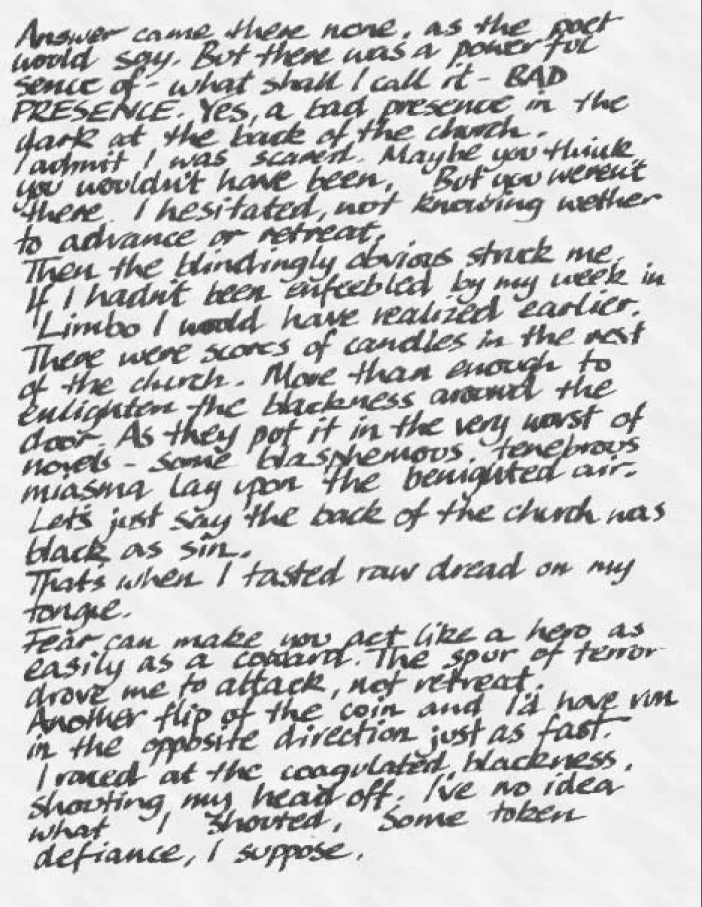 Answer came there none, as the poet
would say. But there was a powerful
sence of - what shall I call it - BAD
PRESENCE. Yes, a bad presence in the
dark at the back of the church.
I admit I was scared. Maybe you think
you wouldn't have been. But you weren't
there. I hesitated, not knowing wether
to advance or retreat.
Then the blindingly obvious struck me.
If I hadn't been enfeebled by my week in
Limbo I would have realized earlier.
There were scores of candles in the rest
of the church. More than enough to
enlighten the blackness around the
door. As they put it in the very worst of
novels - some blasphemous, tenebrous
miasma lay upon the benighted air.
Let's just say the back of the church was
black as sin.
Thats when I tasted raw dread on my
tongue.
Fear can make you act like a hero as
easily as a coward. The spur of terror
drove me to attack, not retreat.
Another flip of the coin and I'd have run
in the opposite direction just as fast.
I raced at the coagulated blackness,
shouting my head off. I've no idea
what I shouted. Some token
defiance, I suppose.